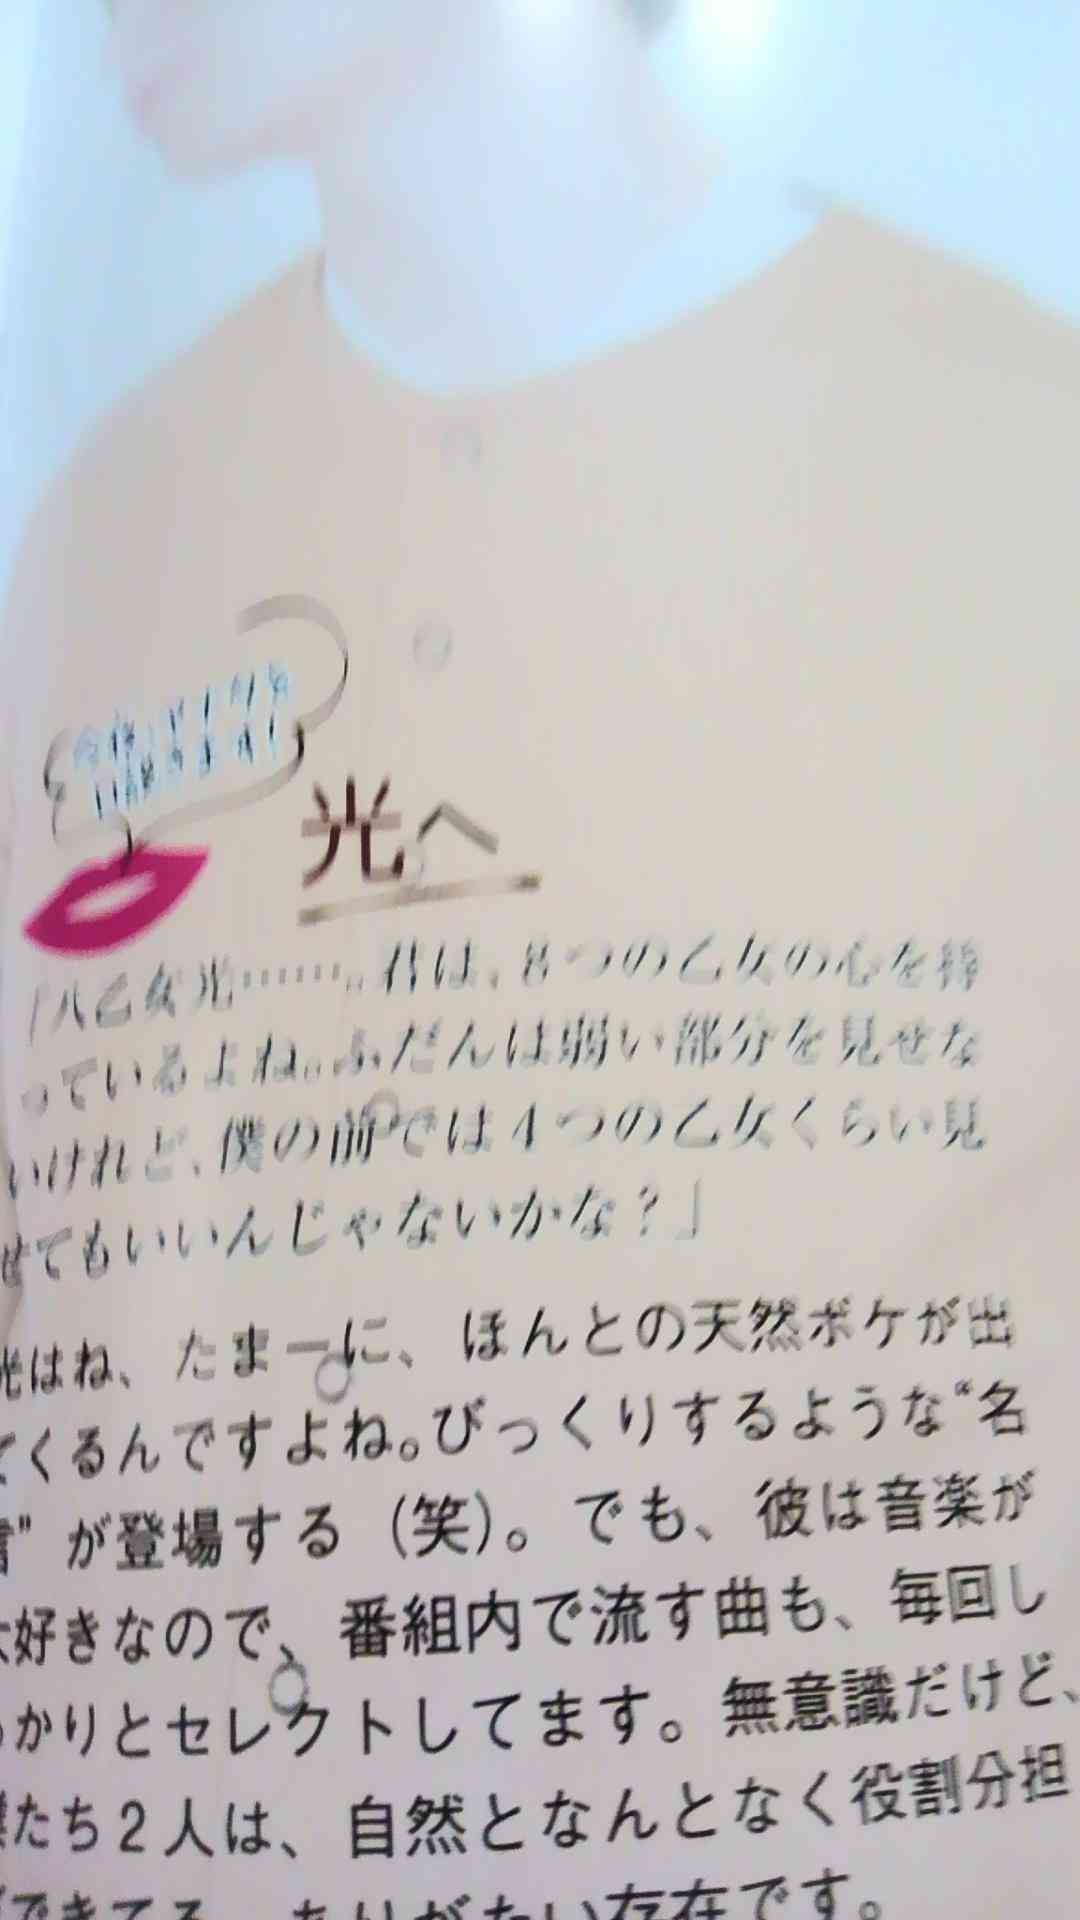 光へ
「八乙女光……。君は、8つの乙女の心を持
っているよね。ふだんは弱い部分を見せな
いけれど、僕の前では4つの乙女くらい見
せてもいいんじゃないかな？」
光はね、たまーに、ほんとの天然ボケが出
てくるんですよね。びっくりするような“名
言”が登場する（笑）。でも、彼は音楽が
大好きなので、番組内で流す曲も、毎回し
っかりとセレクトしてます。無意識だけど、
僕たち2人は、自然となんとなく役割分担
できてる。ありがたい存在です。